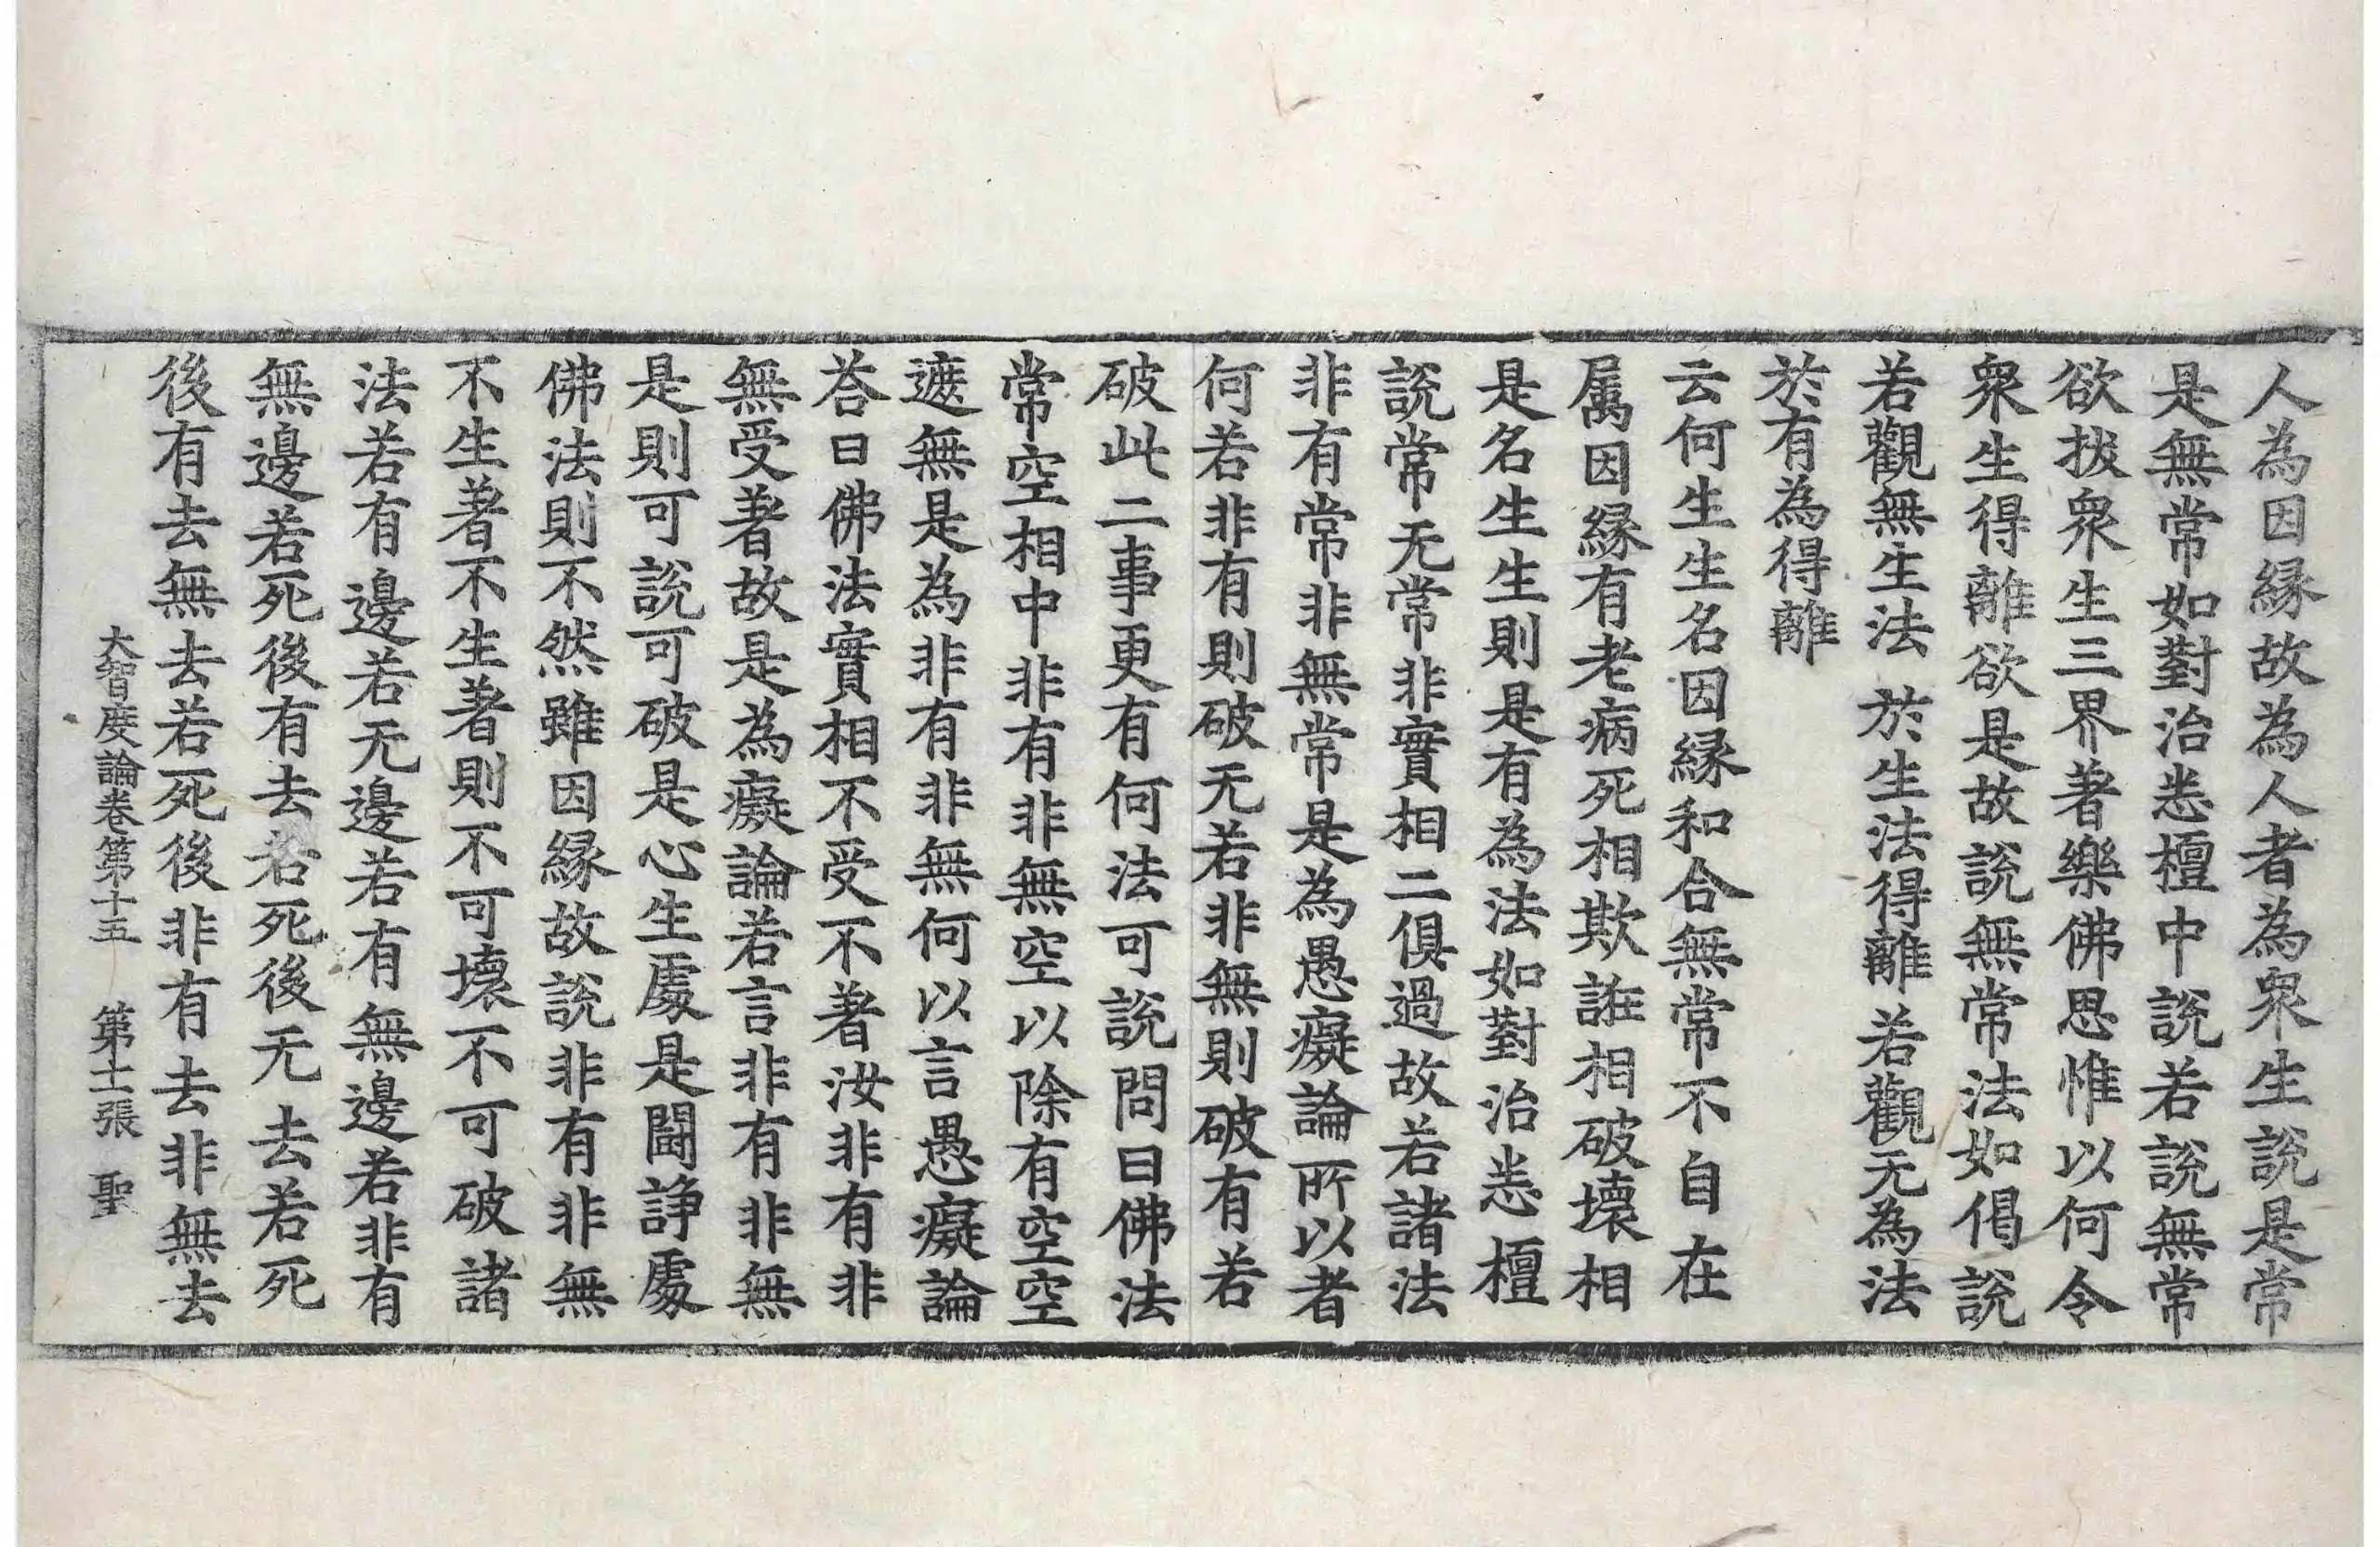 人為因縁故為人者為衆生說是常
是無常如對治悉檀中說若說無常
欲拔衆生三界著樂佛思惟以何令
衆生得離欲是故說無常法如偈說
若觀無生法　於生法得離　若觀无為法
於有為得離
云何生生名因縁和合無常不自在
属因縁有老病死相欺誑相破壞相
是名生生則是有為法如對治悉檀
說常无常非實相二俱過故若諸法
非有常非無常是為愚癡論所以者
何若非有則破无若非無則破有若
破此二事更有何法可說問曰佛法
常空相中非有非無空以除有空空
遮無是為非有非無何以言愚癡論
荅曰佛法實相不受不著汝非有非
無受著故是為癡論若言非有非無
是則可說可破是心生處是鬪諍處
佛法則不然雖因縁故說非有非無
不生著不生著則不可壞不可破諸
法若有邊若无邊若有無邊若非有
無邊若死後有去若死後无去若死
後有去無去若死後非有去非無去
大智度論卷第十五　第十二張　聖